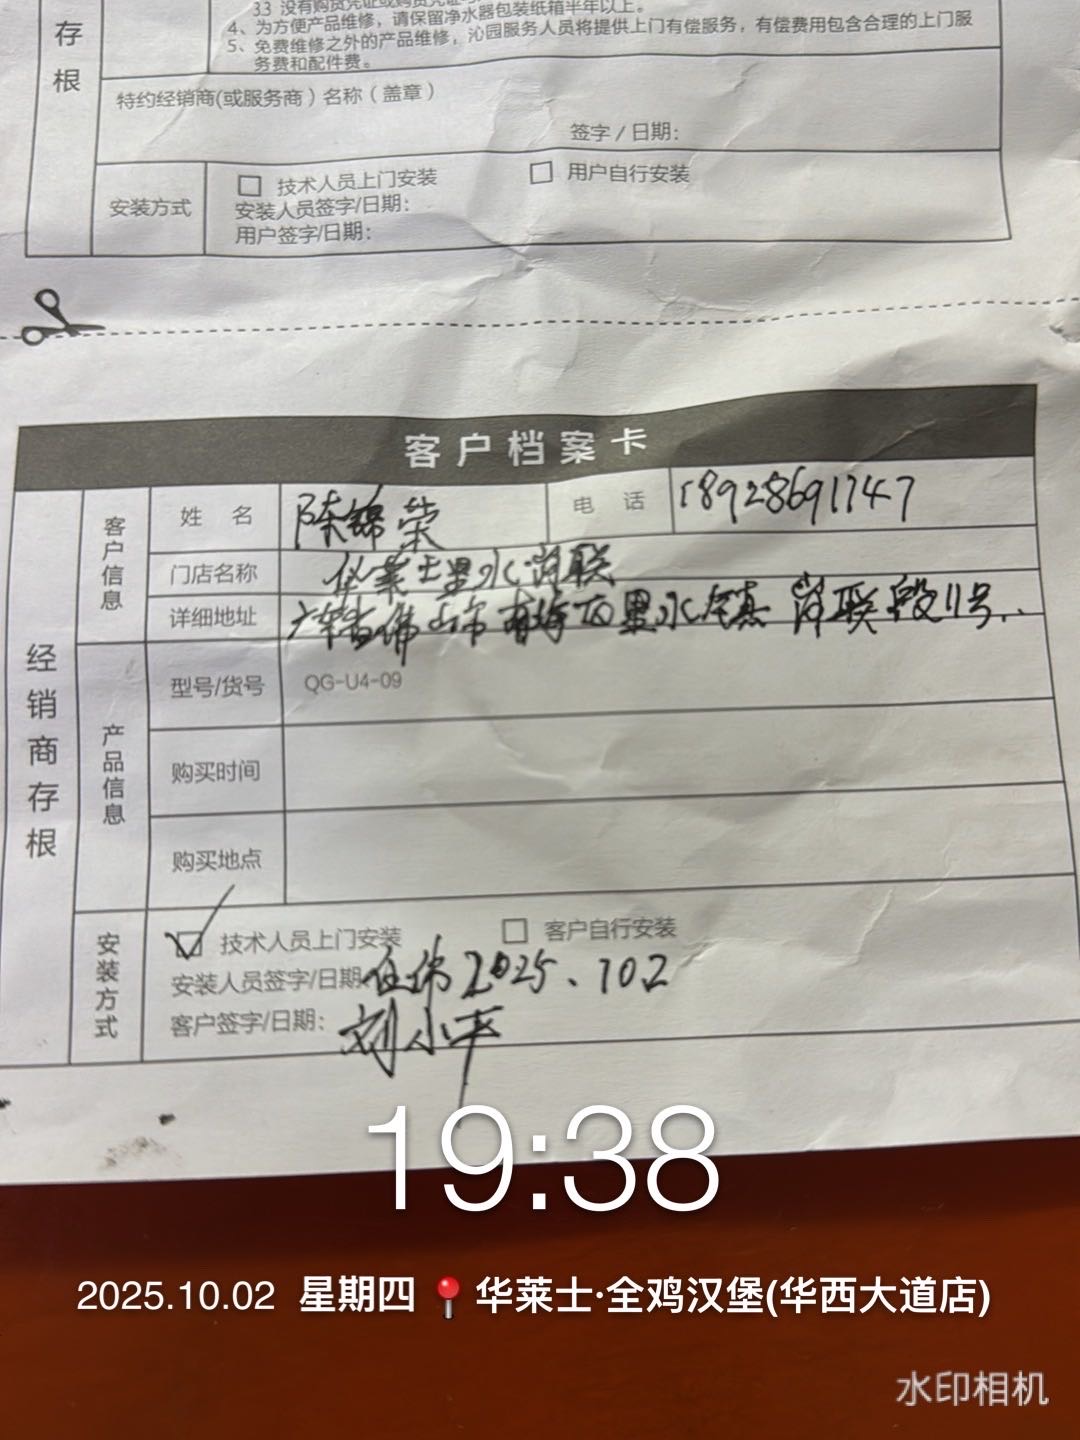 存
根
33 没有购货凭证或购货凭证
4、为方便产品维修，请保留净水器包装纸箱半年以上。
5、免费维修之外的产品维修，沁园服务人员将提供上门有偿服务，有偿费用包含合理的上门服
务费和配件费。
特约经销商(或服务商）名称（盖章）
签字 / 日期：
安装方式
□ 技术人员上门安装 □ 用户自行安装
安装人员签字/日期：
用户签字/日期：
客户档案卡
经销商存根
客户信息
姓 名 陈锦荣 电 话 18928691747
门店名称 华莱士里水岗联
详细地址 广东省佛山市南海区里水镇岗联段11号.
产品信息
型号/货号 QG-U4-09
购买时间
购买地点
安装方式
☑ 技术人员上门安装 □ 客户自行安装
安装人员签字/日期 2025、102
客户签字/日期： 刘小平
19:38
2025.10.02 星期四 华莱士·全鸡汉堡(华西大道店)
水印相机